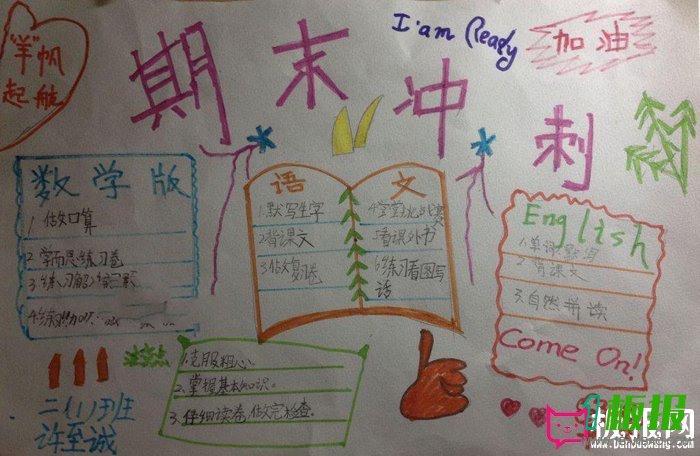 "羊"帆
起航
I am Ready
加油
期末冲刺
数学版
1.做口算
2.学而思练习卷
语文
1.默写生字
2.背课文
3.做复习卷
5.看课外书
6.练习看图写
话
English
1.单词默写
2.背课文
3.自然拼读
Come On!
注意点
1.克服粗心.
2.掌握基本知识.
3.仔细读卷,做完检查.
二(1)班
许至诚
板报网
www.banbaowang.com